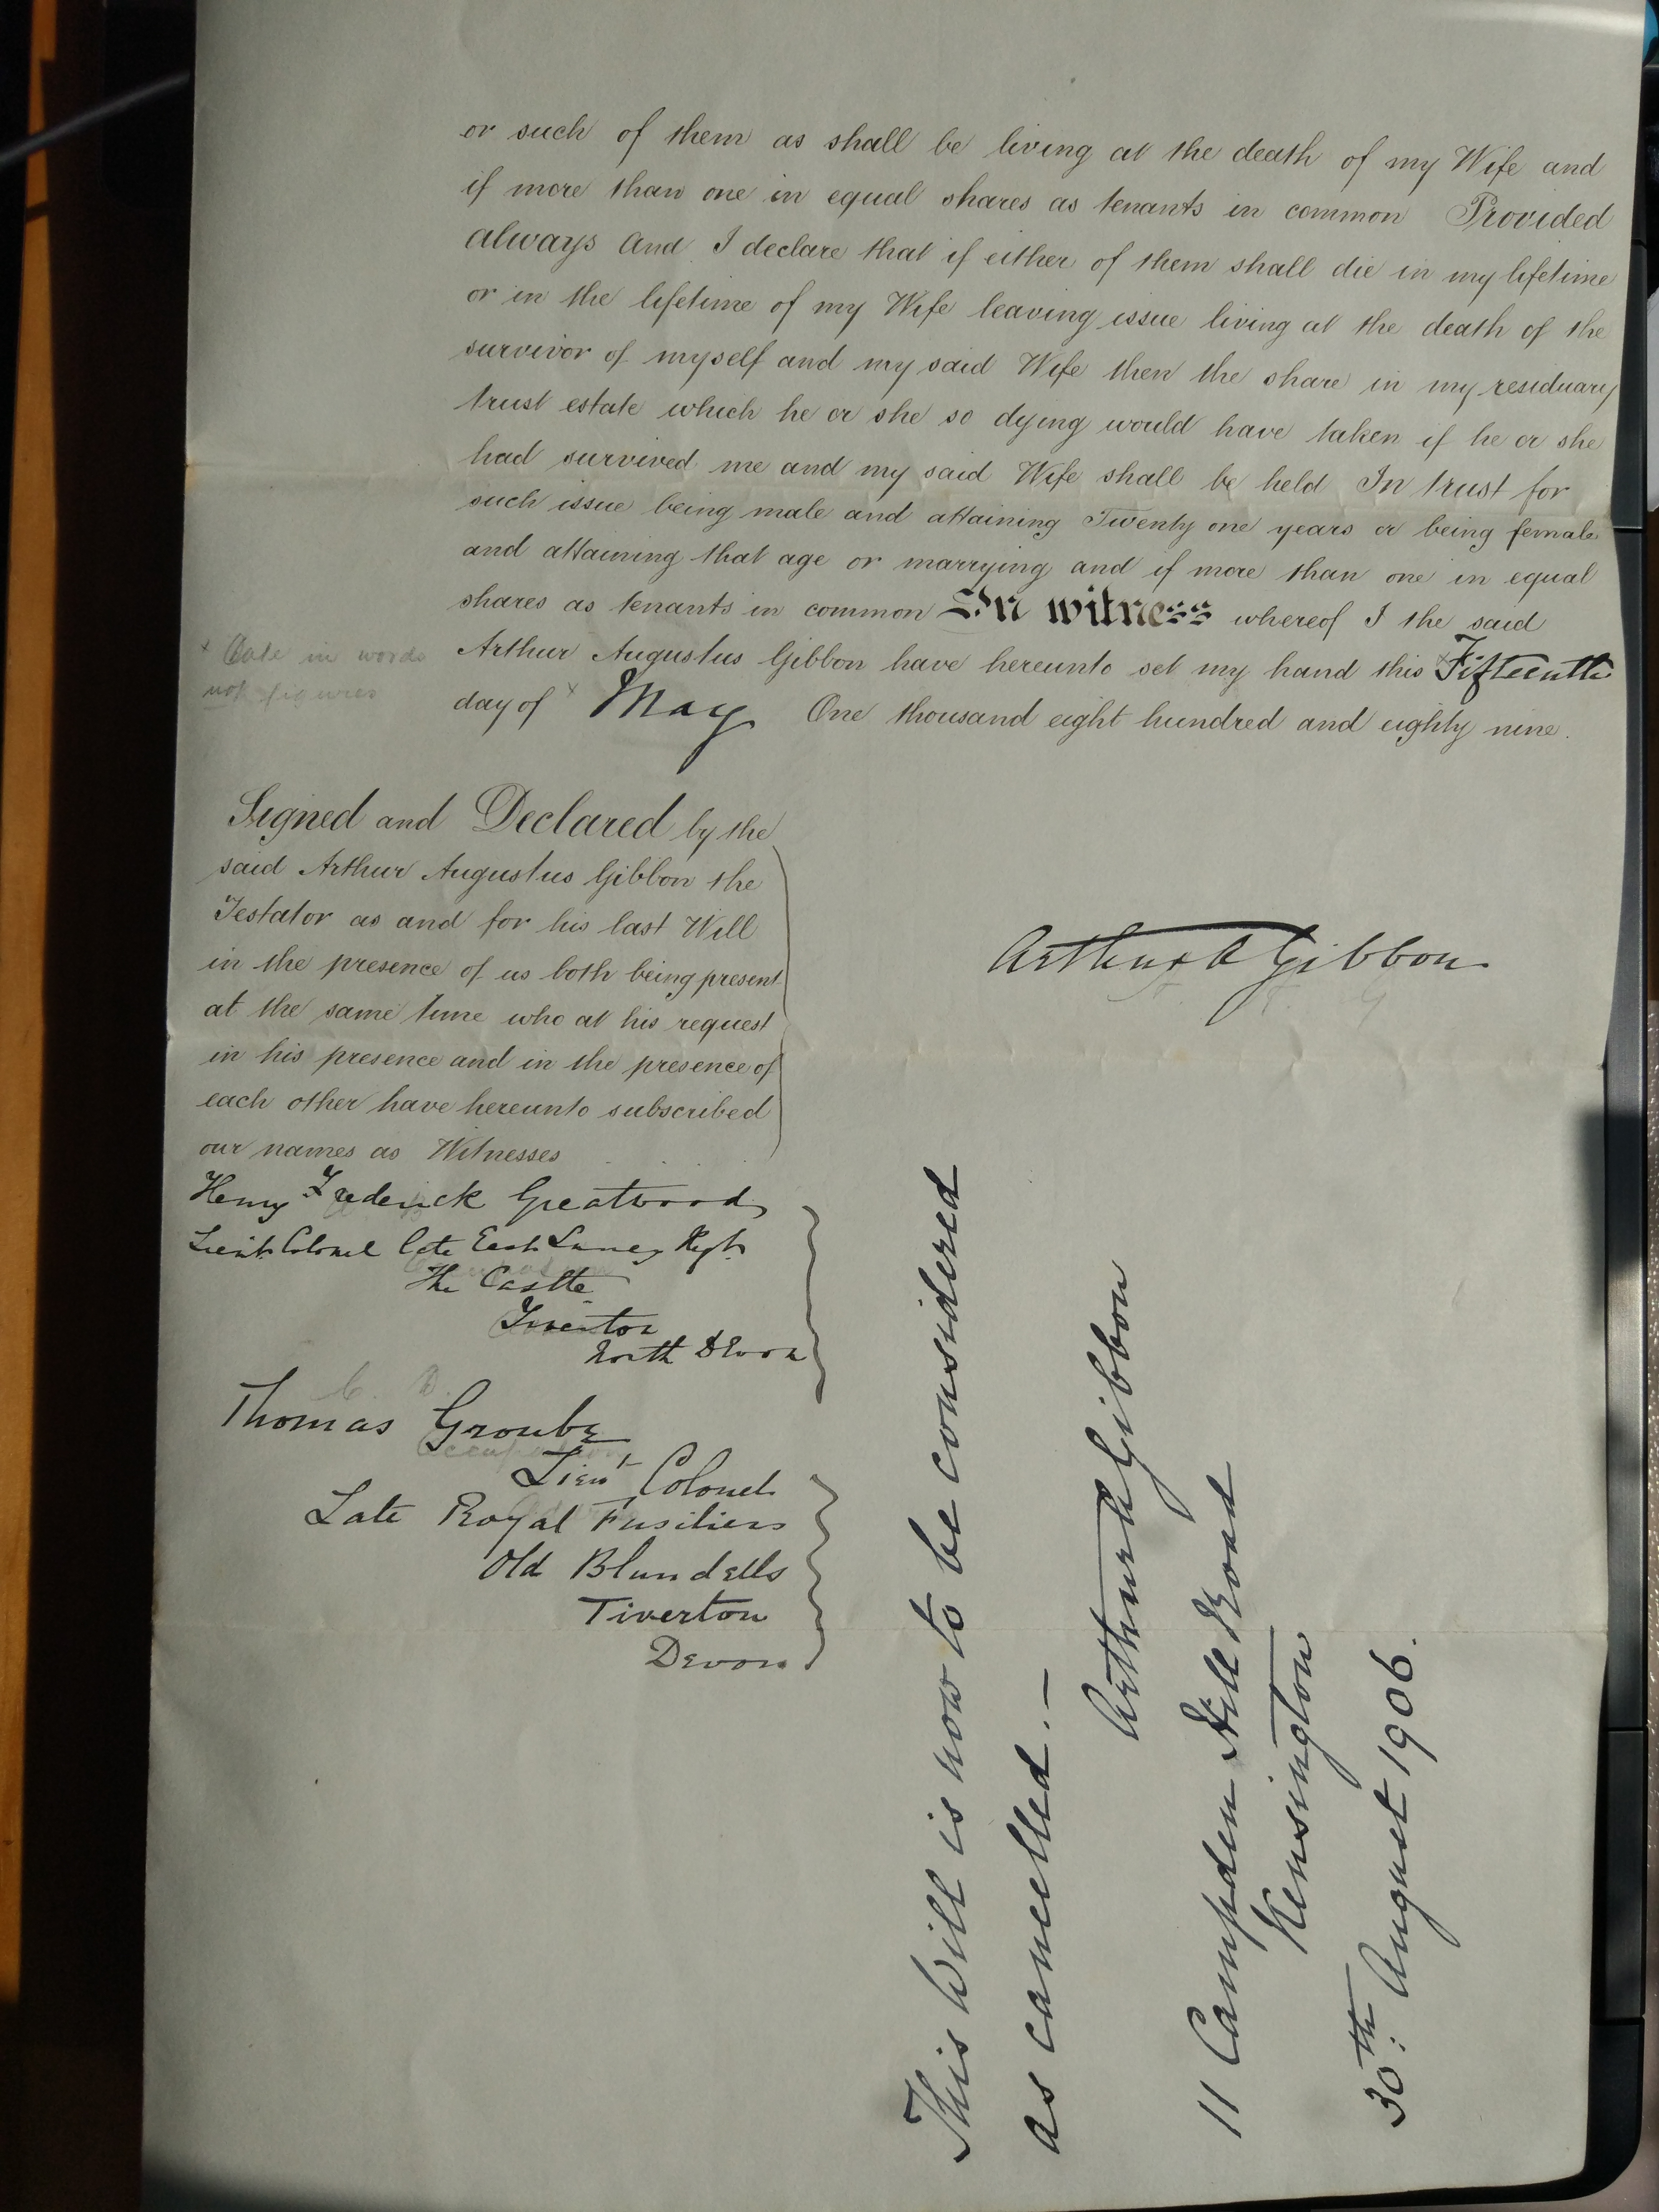 or such of them as shall be living at the death of my Wife and
if more than one in equal shares as tenants in common Provided
always And I declare that if either of them shall die in my lifetime
or in the lifetime of my Wife leaving issue living at the death of the
survivor of myself and my said Wife then the share in my residuary
trust estate which he or she so dying would have taken if he or she
had survived me and my said Wife shall be held In trust for
such issue being male and attaining Twenty one years or being female
and attaining that age or marrying and if more than one in equal
shares as tenants in common In witness whereof I the said
Arthur Augustus Gibbon have hereunto set my hand this × Fifteenth
day of × May One thousand eight hundred and eighty nine.
× Date in words
not figures
Signed and Declared by the
said Arthur Augustus Gibbon the
Testator as and for his last Will
in the presence of us both being present
at the same time who at his request
in his presence and in the presence of
each other have hereunto subscribed
our names as Witnesses
Arthur A Gibbon
Henry Frederick Greatwood
Lieut Colonel late East Surrey Regt.
The Castle
Tiverton
North Devon
C. D.
Thomas Groube
Occupation
Lieut Colonel
Late Royal Fusiliers
Old Blundells
Tiverton
Devon
This Will is now to be considered
as cancelled. —
Arthur A Gibbon
11 Campden Hill Road
Kensington
30th. August 1906.